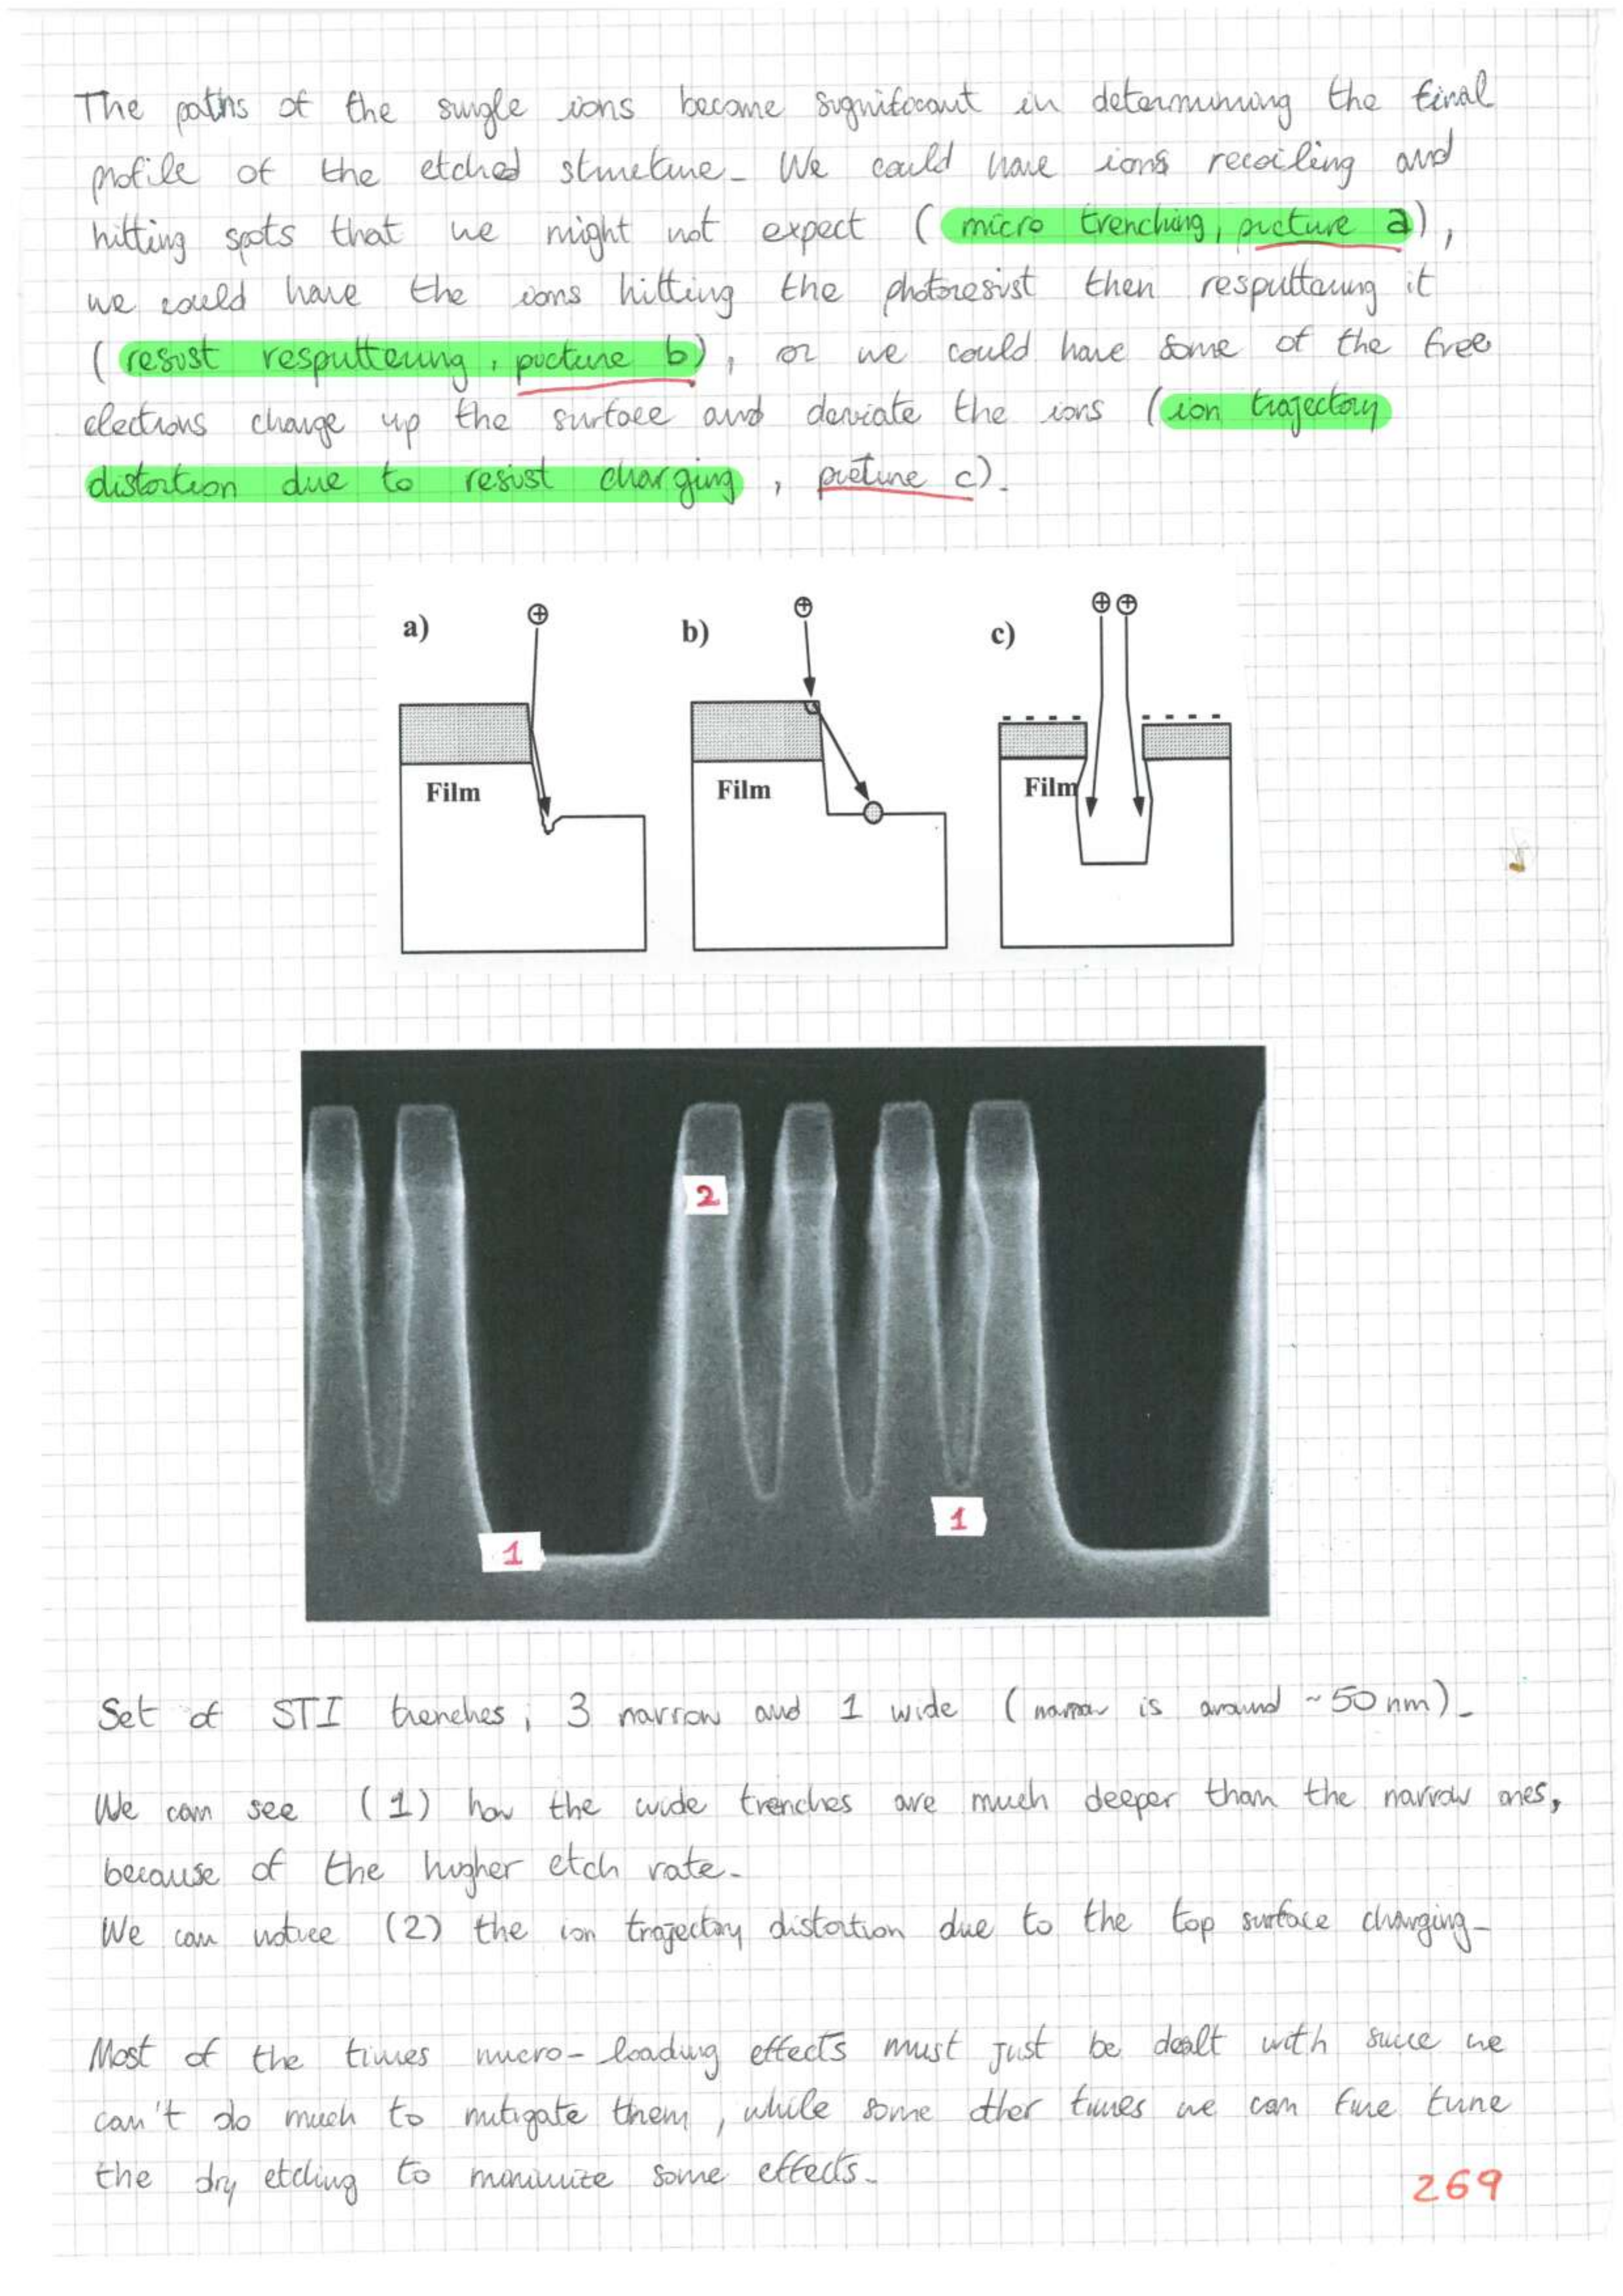 The paths of the single ions become significant in determining the final
profile of the etched structure. We could have ions recoiling and
hitting spots that we might not expect (micro trenching, picture a),
we could have the ions hitting the photoresist then resputtering it
(resist resputtering, picture b), or we could have some of the free
electrons charge up the surface and deviate the ions (ion trajectory
distortion due to resist charging, picture c).
a) b) c)
Film Film Film
2
1
1
Set of STI trenches, 3 narrow and 1 wide (narrow is around ~50 nm).
We can see (1) how the wide trenches are much deeper than the narrow ones,
because of the higher etch rate.
We can notice (2) the ion trajectory distortion due to the top surface charging.
Most of the times micro-loading effects must just be dealt with since we
can't do much to mitigate them, while some other times we can fine tune
the dry etching to minimize some effects.
269